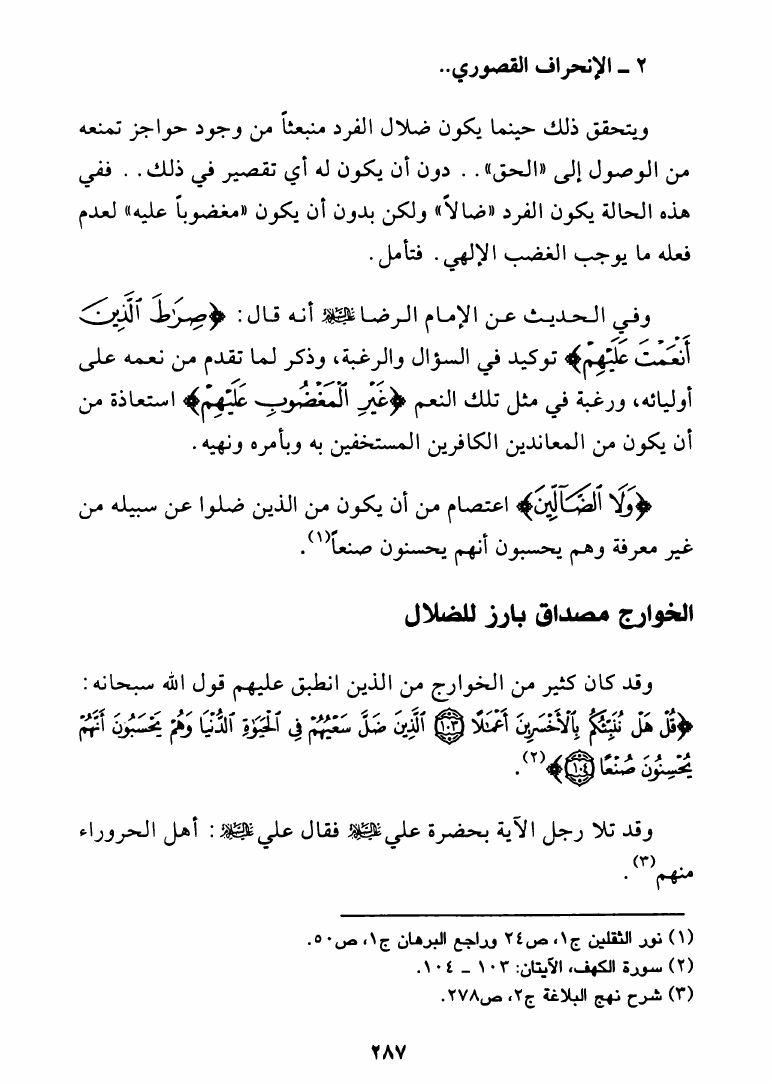 ٢ ـ الإنحراف القصوري..
ويتحقق ذلك حينما يكون ضلال الفرد منبعثاً من وجود حواجز تمنعه
من الوصول إلى «الحق».. دون أن يكون له أي تقصير في ذلك.. ففي
هذه الحالة يكون الفرد «ضالاً» ولكن بدون أن يكون «مغضوباً عليه» لعدم
فعله ما يوجب الغضب الإلهي. فتأمل.
وفي الحديث عن الإمام الرضا عليه السلام أنه قال: ﴿صِرَٰطَ ٱلَّذِينَ
أَنۡعَمۡتَ عَلَيۡهِمۡ﴾ توكيد في السؤال والرغبة، وذكر لما تقدم من نعمه على
أوليائه، ورغبة في مثل تلك النعم ﴿غَيۡرِ ٱلۡمَغۡضُوبِ عَلَيۡهِمۡ﴾ استعاذة من
أن يكون من المعاندين الكافرين المستخفين به وبأمره ونهيه.
﴿وَلَا ٱلضَّآلِّينَ﴾ اعتصام من أن يكون من الذين ضلوا عن سبيله من
غير معرفة وهم يحسبون أنهم يحسنون صنعاً(١).
الخوارج مصداق بارز للضلال
وقد كان كثير من الخوارج من الذين انطبق عليهم قول الله سبحانه:
﴿قُلۡ هَلۡ نُنَبِّئُكُم بِٱلۡأَخۡسَرِينَ أَعۡمَٰلًا ١٠٣ ٱلَّذِينَ ضَلَّ سَعۡيُهُمۡ فِي ٱلۡحَيَوٰةِ ٱلدُّنۡيَا وَهُمۡ يَحۡسَبُونَ أَنَّهُمۡ
يُحۡسِنُونَ صُنۡعًا ١٠٤﴾(٢).
وقد تلا رجل الآية بحضرة علي عليه السلام فقال علي عليه السلام: أهل الحروراء
منهم(٣).
(١) نور الثقلين ج١، ص٢٤ وراجع البرهان ج١، ص٥٠.
(٢) سورة الكهف، الآيتان: ١٠٣ ـ ١٠٤.
(٣) شرح نهج البلاغة ج٢، ص٢٧٨.
٢٨٧